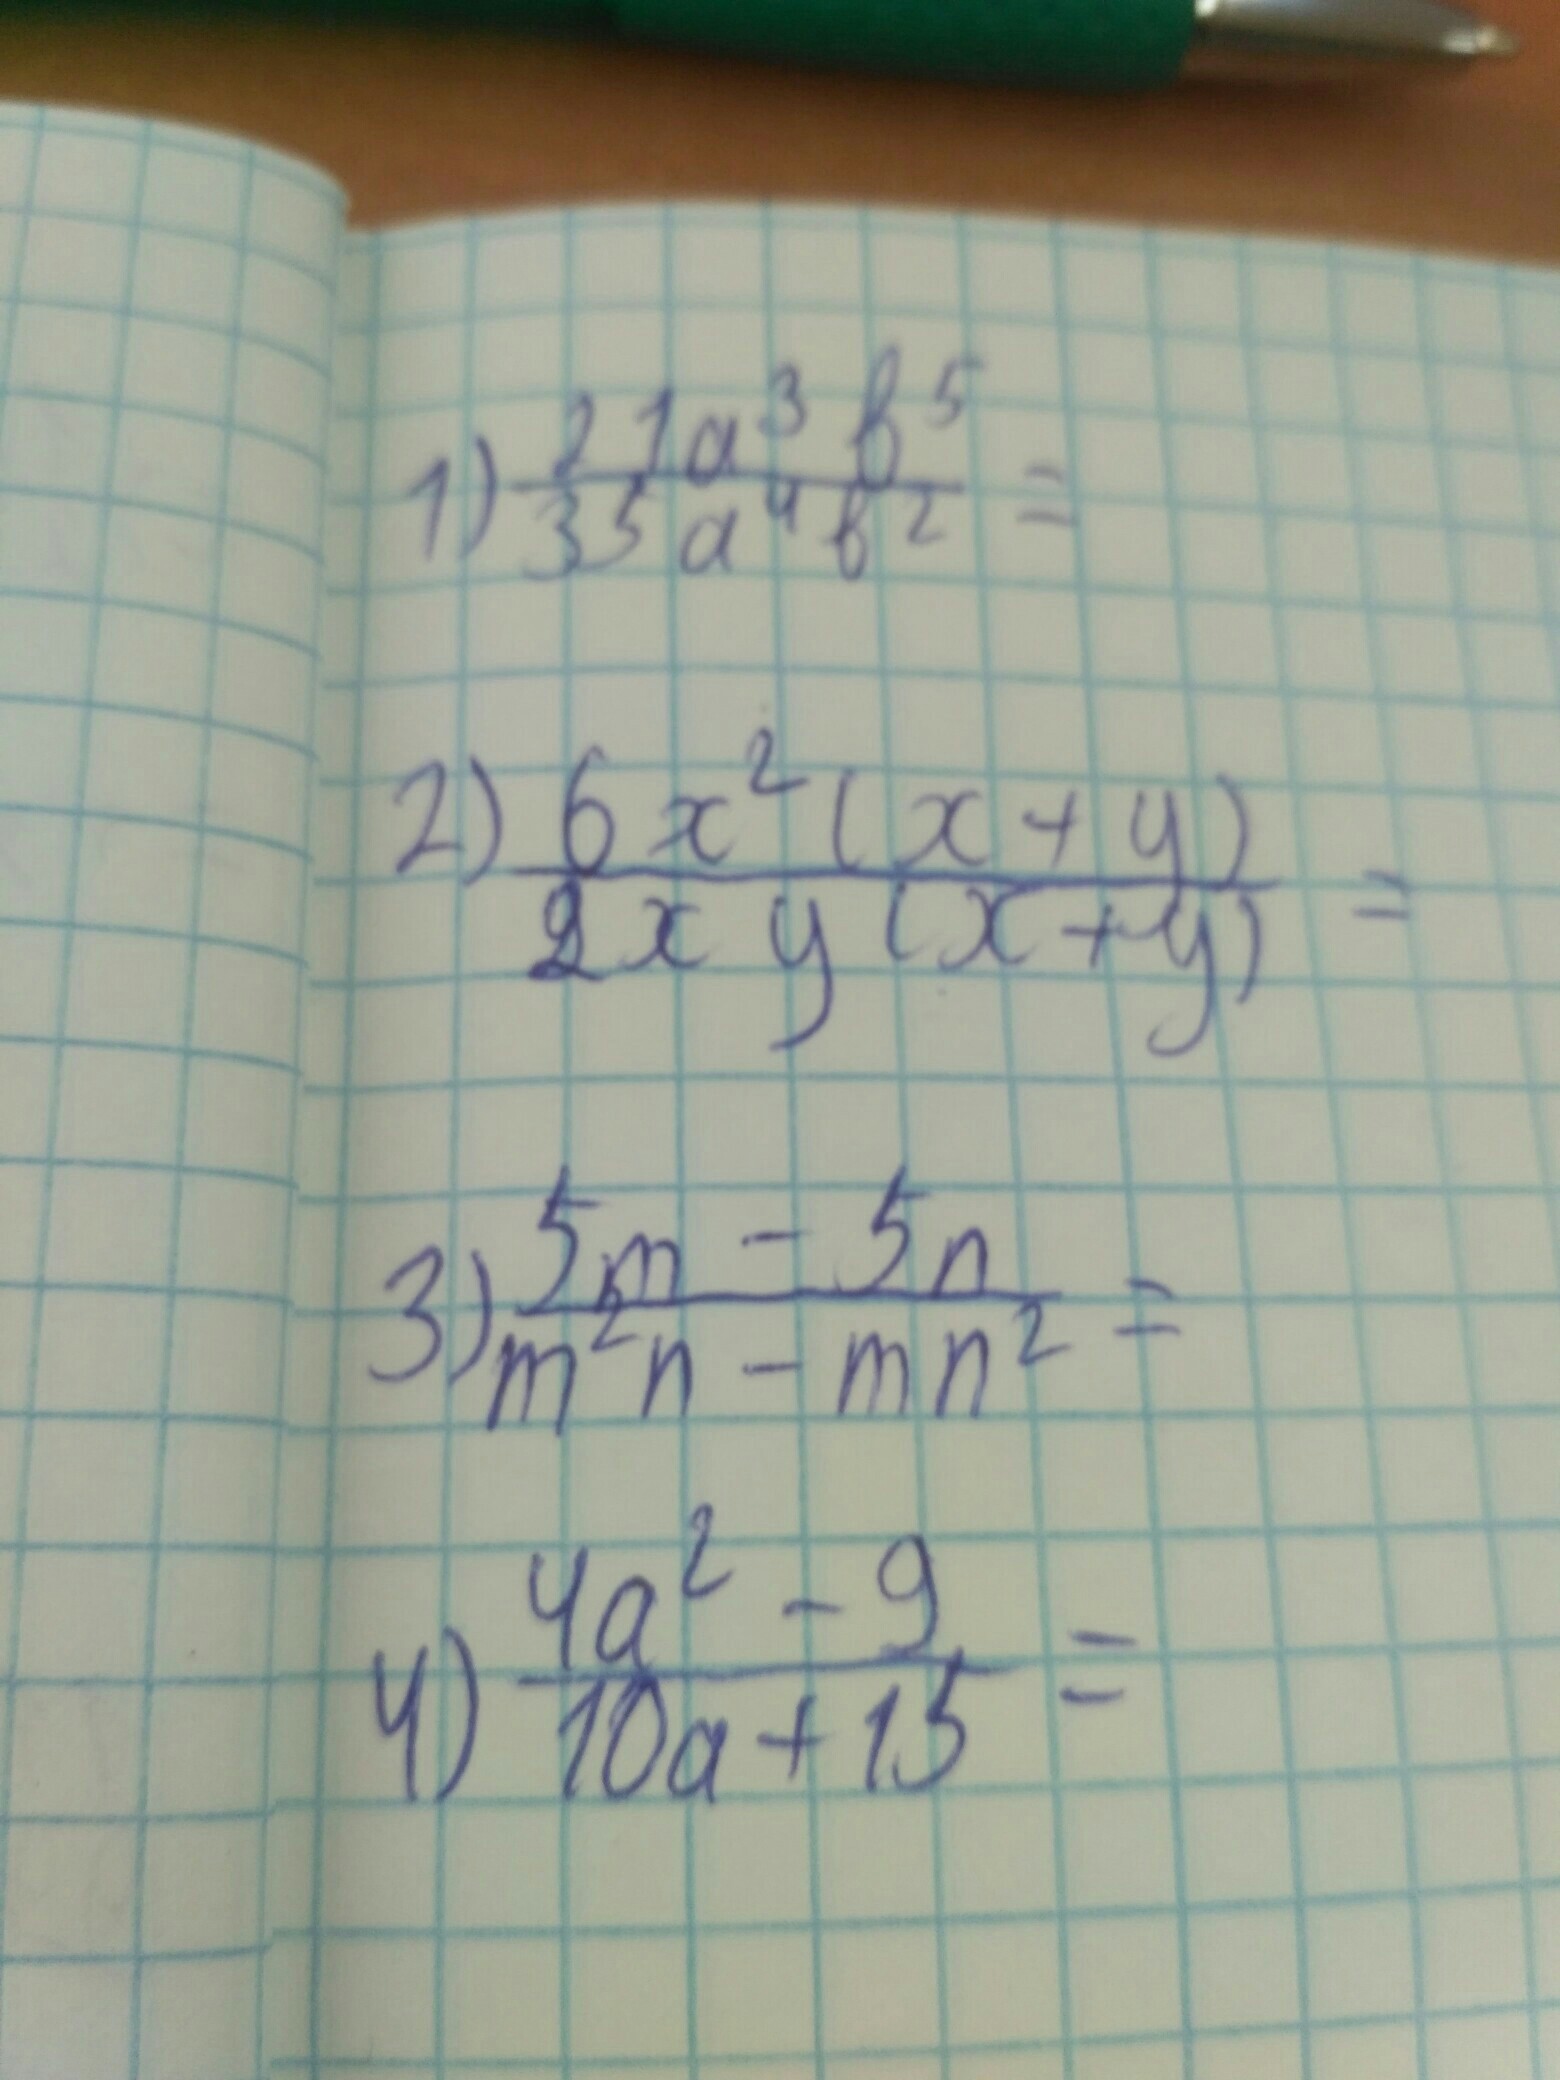 1) 21a³b⁵ / 35a⁴b² =
2) 6x²(x+y) / 2xy(x+y) =
3) 5m - 5n / m²n - mn² =
4) 4a² - 9 / 10a + 15 =